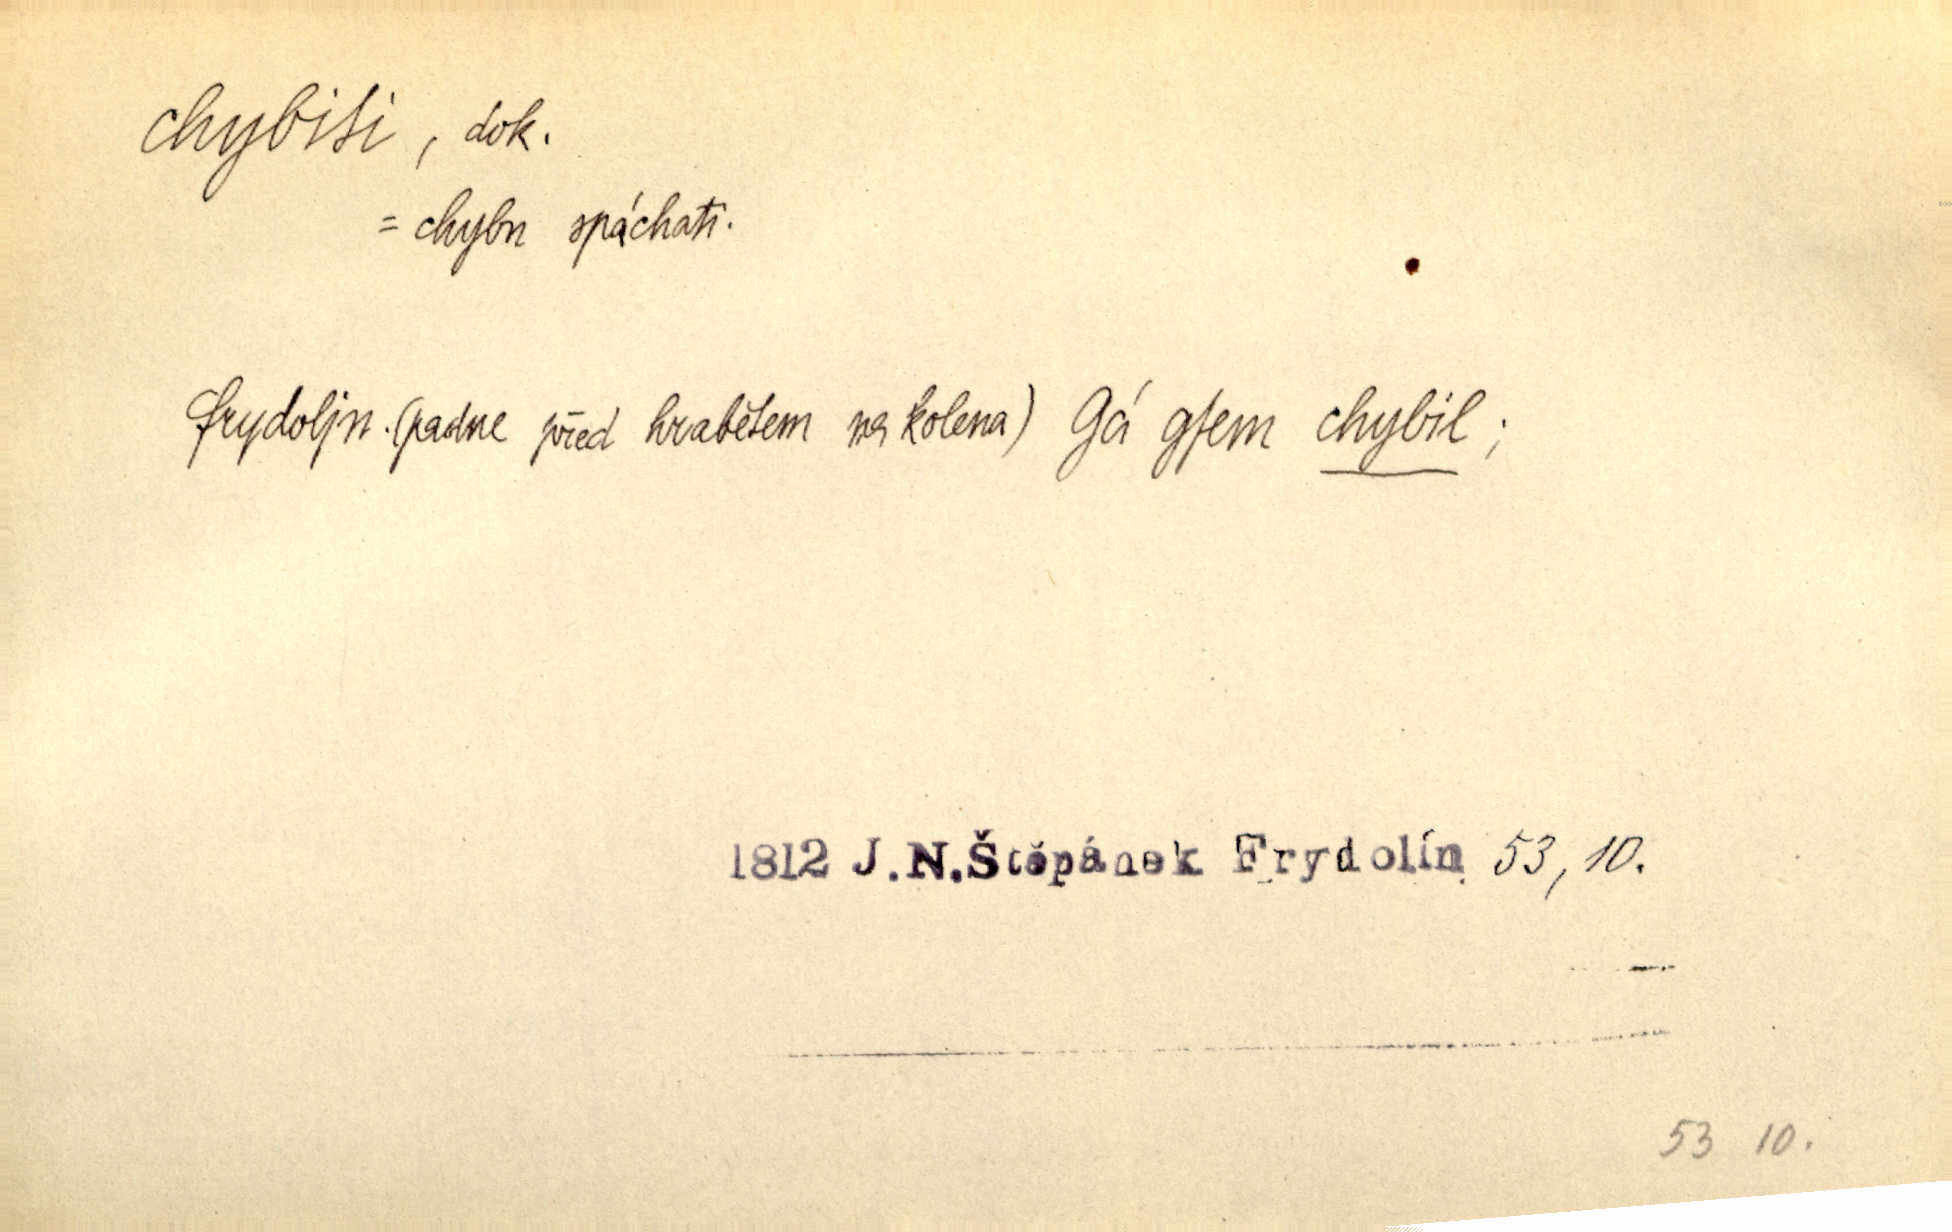 chybiti, dok.
= chybu spáchati.
Frydoljn. (padne před hrabětem na kolena) Gá gsem chybil;
1812 J.N.Štěpánek Frydolín 53, 10.
53 10.